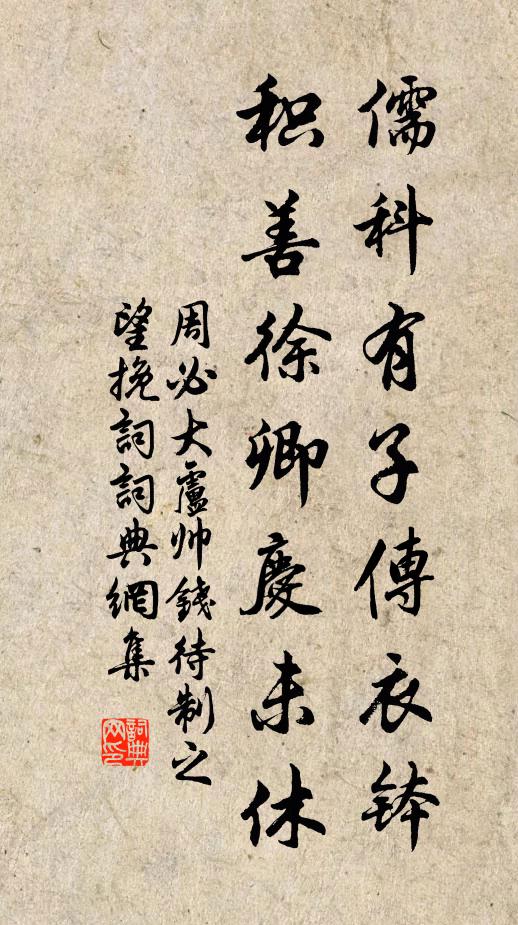 儒科有子傳衣钵
积善徐卿慶未休
周必大盧帅錢待制之
望挽詞詞典網集
詞典网印